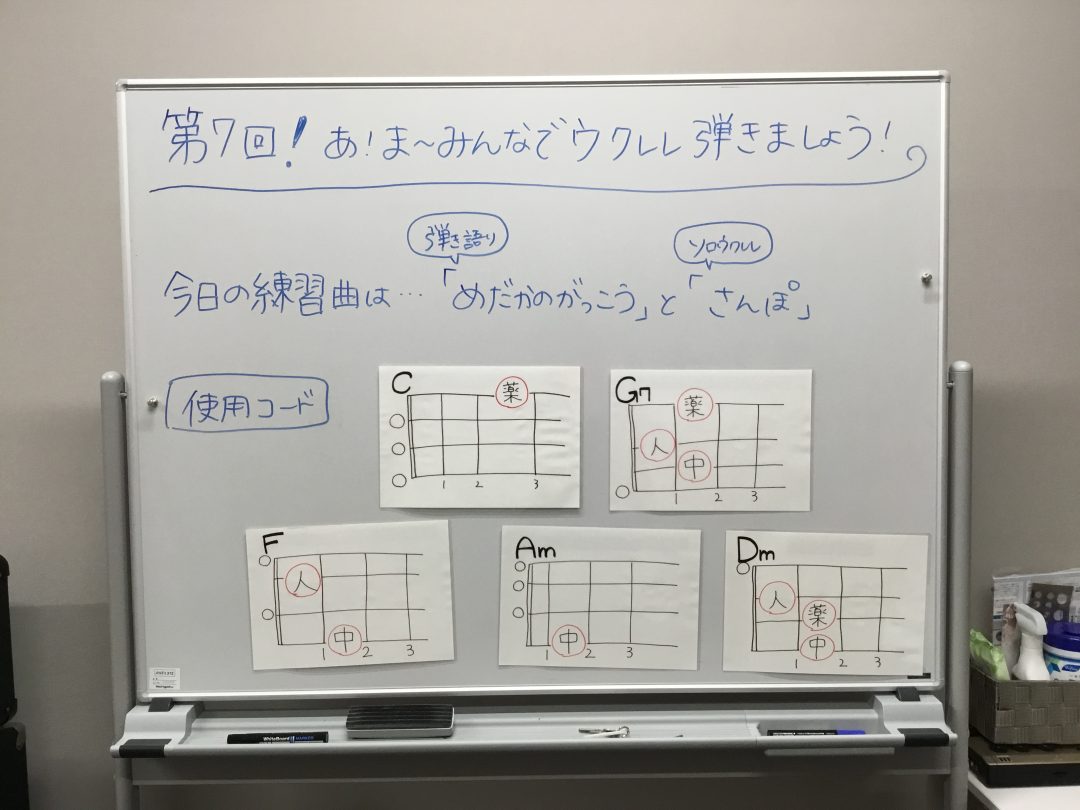 第7回! あ!ま~みんなでウクレレ弾きましょう!
弾き語り
ソロウクレレ
今日の練習曲は…「めだかのがっこう」と「さんぽ」
使用コード
C
薬
1 2 3
G7
薬
人
中
1 2 3
F
人
中
1 2 3
Am
中
1 2 3
Dm
人
薬
中
1 2 3
WhiteBoard MARKER